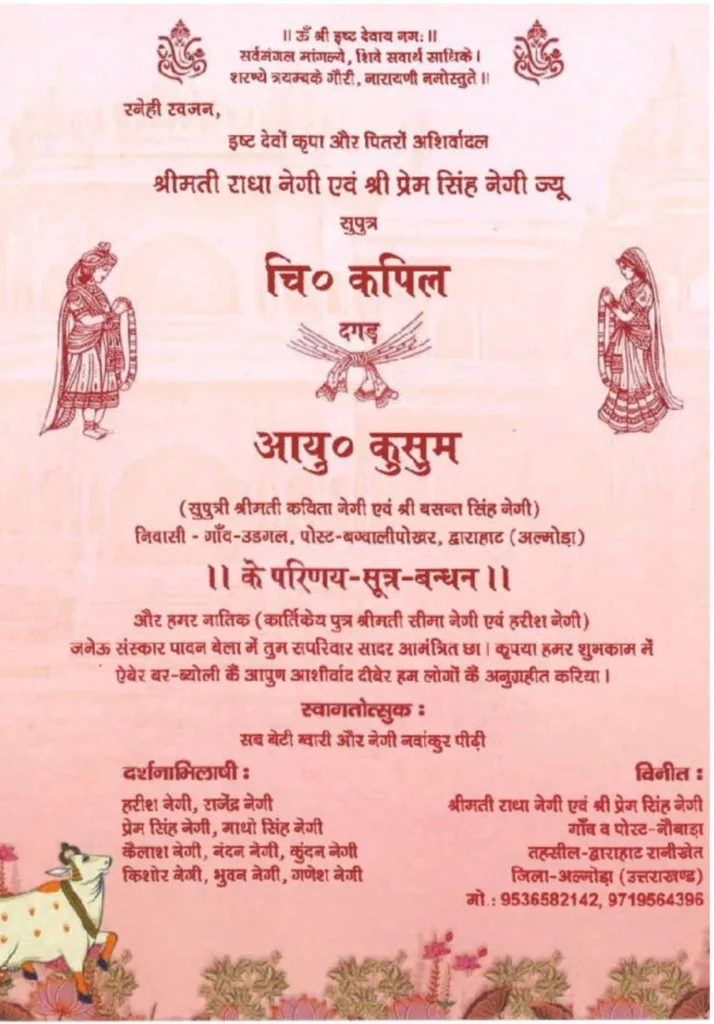 ॥ ॐ श्री इष्ट देवाय नमः ॥
सर्वमंगल मांगल्ये, शिवे सवार्थ साधिके।
शरण्ये त्रयम्बके गौरी, नारायणी नमोस्तुते॥
स्नेही स्वजन,
इष्ट देवों कृपा और पितरों अशिर्वादल
श्रीमती राधा नेगी एवं श्री प्रेम सिंह नेगी ज्यू
सुपुत्र
चि० कपिल
दगड़
आयु० कुसुम
(सुपुत्री श्रीमती कविता नेगी एवं श्री बसन्त सिंह नेगी)
निवासी - गाँव-उडगल, पोस्ट-बग्वालीपोखर, द्वाराहाट (अल्मोड़ा)
॥ के परिणय-सूत्र-बन्धन ॥
और हमर नातिक (कार्तिकेय पुत्र श्रीमती सीमा नेगी एवं हरीश नेगी)
जनेऊ संस्कार पावन बेला में तुम सपरिवार सादर आमंत्रित छा। कृपया हमर शुभकाम में
ऐबेर बर-ब्योली कैं आपुण आशीर्वाद दीबेर हम लोगों कैं अनुग्रहीत करिया।
स्वागतोत्सुक :
सब बेटी ब्वारी और नेगी नवांकुर पीढ़ी
दर्शनाभिलाषी :
हरीश नेगी, राजेंद्र नेगी
प्रेम सिंह नेगी, माधो सिंह नेगी
कैलाश नेगी, नंदन नेगी, कुंदन नेगी
किशोर नेगी, भुवन नेगी, गणेश नेगी
विनीत :
श्रीमती राधा नेगी एवं श्री प्रेम सिंह नेगी
गाँव व पोस्ट-नौबाड़ा
तहसील-द्वाराहाट रानीखेत
जिला-अल्मोड़ा (उत्तराखण्ड)
मो.: 9536582142, 9719564396